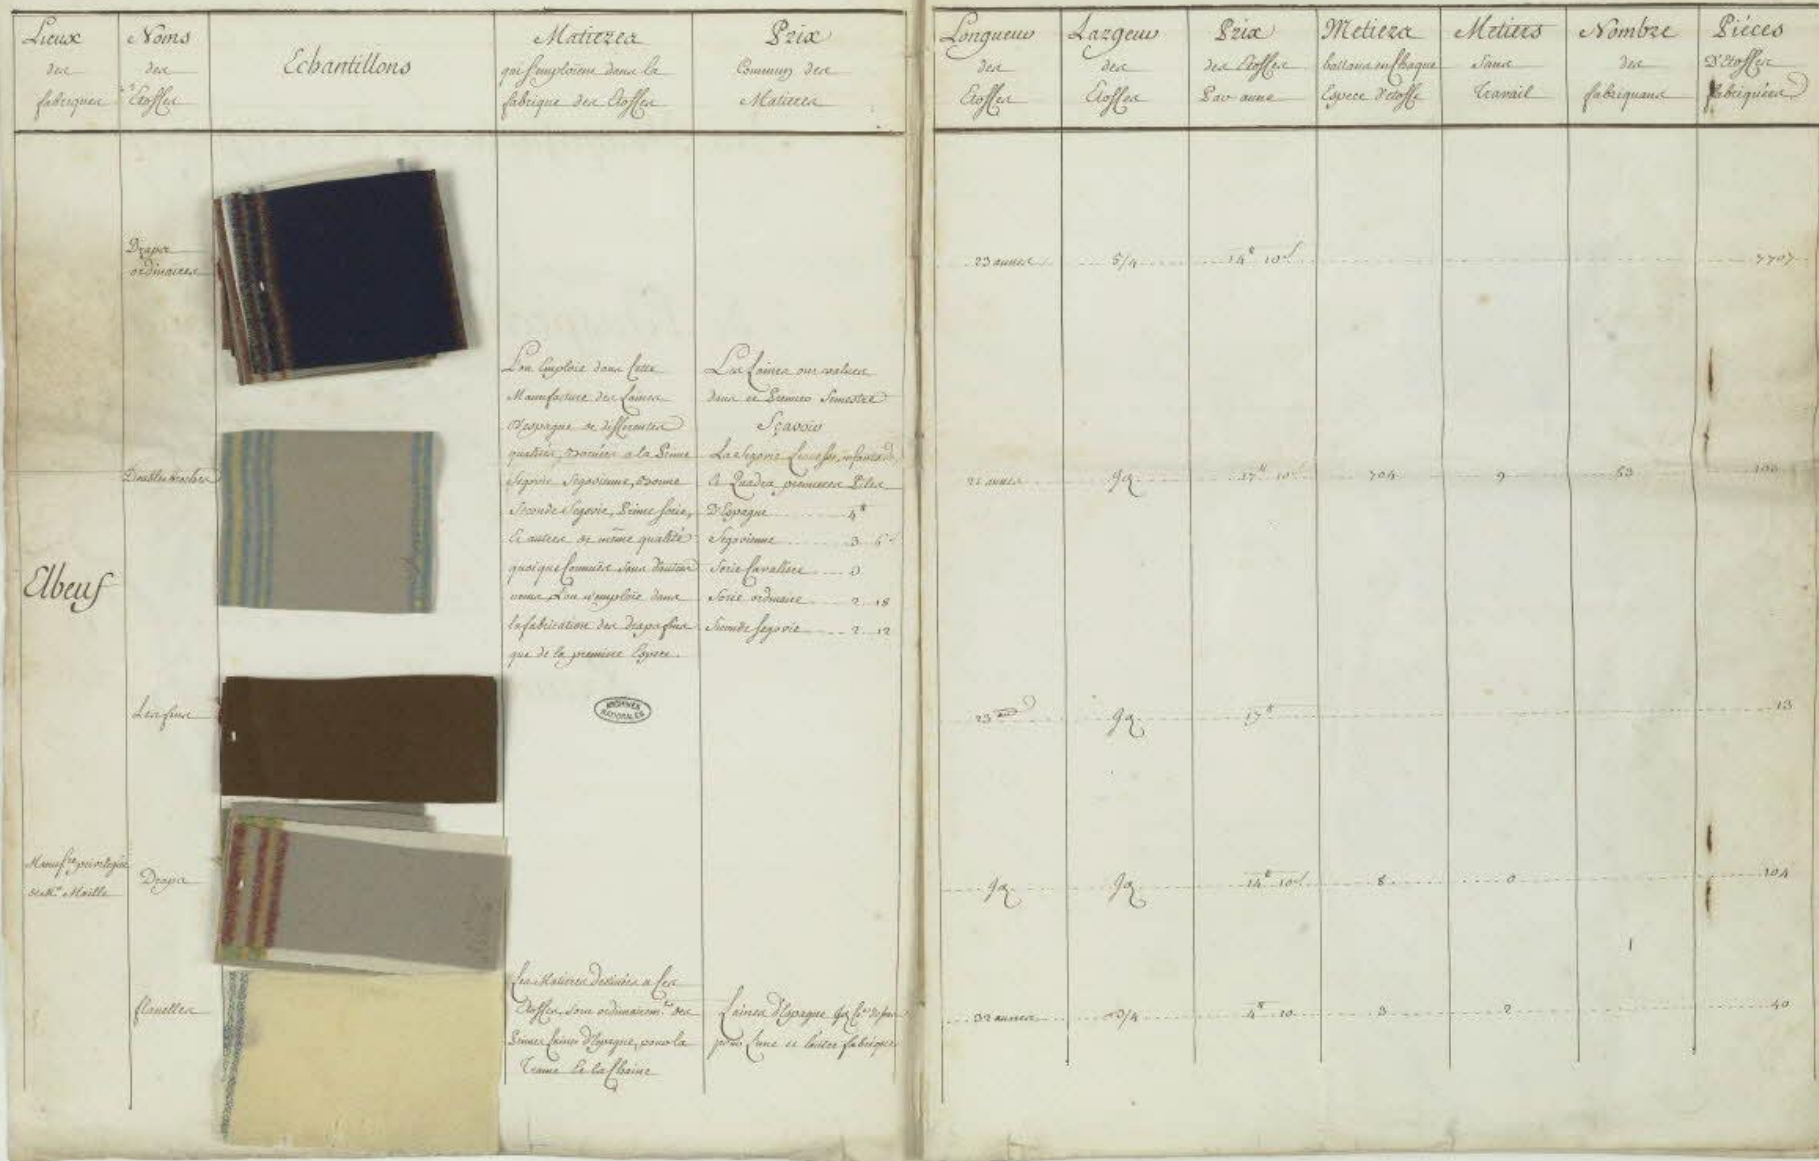 Lieux
des
fabriques
Noms
des
Etoffes
Echantillons
Matieres
qui s'emploient dans la
fabrique des Etoffes
Prix
Commun des
Matieres
Longueur
des
Etoffes
Largeur
des
Etoffes
Prix
des Etoffes
Par aune
Metiers
battans en Chaque
Espece d'etoffe
Metiers
Sans
Travail
Nombre
des
fabriquans
Pièces
D'Etoffes
fabriquées
Elbeuf
Draps
ordinaires
23 aunes 5/4 14# 10s 7707
L'on Emploie dans Cette
Manufacture des Laines
D'espagne de differentes
qualités, a la Prime
Segovie Segovienne,
Seconde Segovie, Prime Sorie,
Et autres de même qualité
quoique Connues sous d'autres
noms, L'on n'emploie dans
la fabrication des draps fins
que de la premiere Espece.
Les Laines ont valu
dans ce Premier Semestre
Sçavoir
La Segovie
Et premieres Piles
D'Espagne 4#
Segovienne 3
Sorie Cavallere 3
Sorie ordinaire 2 18
Seconde Segovie 2 12
Doubles broches
aunes 17# 10s 704 9 63
ARCHIVES
NATIONALES
23 17# 13
Manuf.re privilegiée
de M. Maille
Draps
14# 10s 8 0 104
flanelles
Les Matieres destinées a Ces
Etoffes, sont ordinairem.t des
Primes Laines d'Espagne, pour la
Trame Et la Chaine
Laines d'Espagne
pour l'une et l'autre fabrique
32 aunes 3/4 4# 10 3 2 40